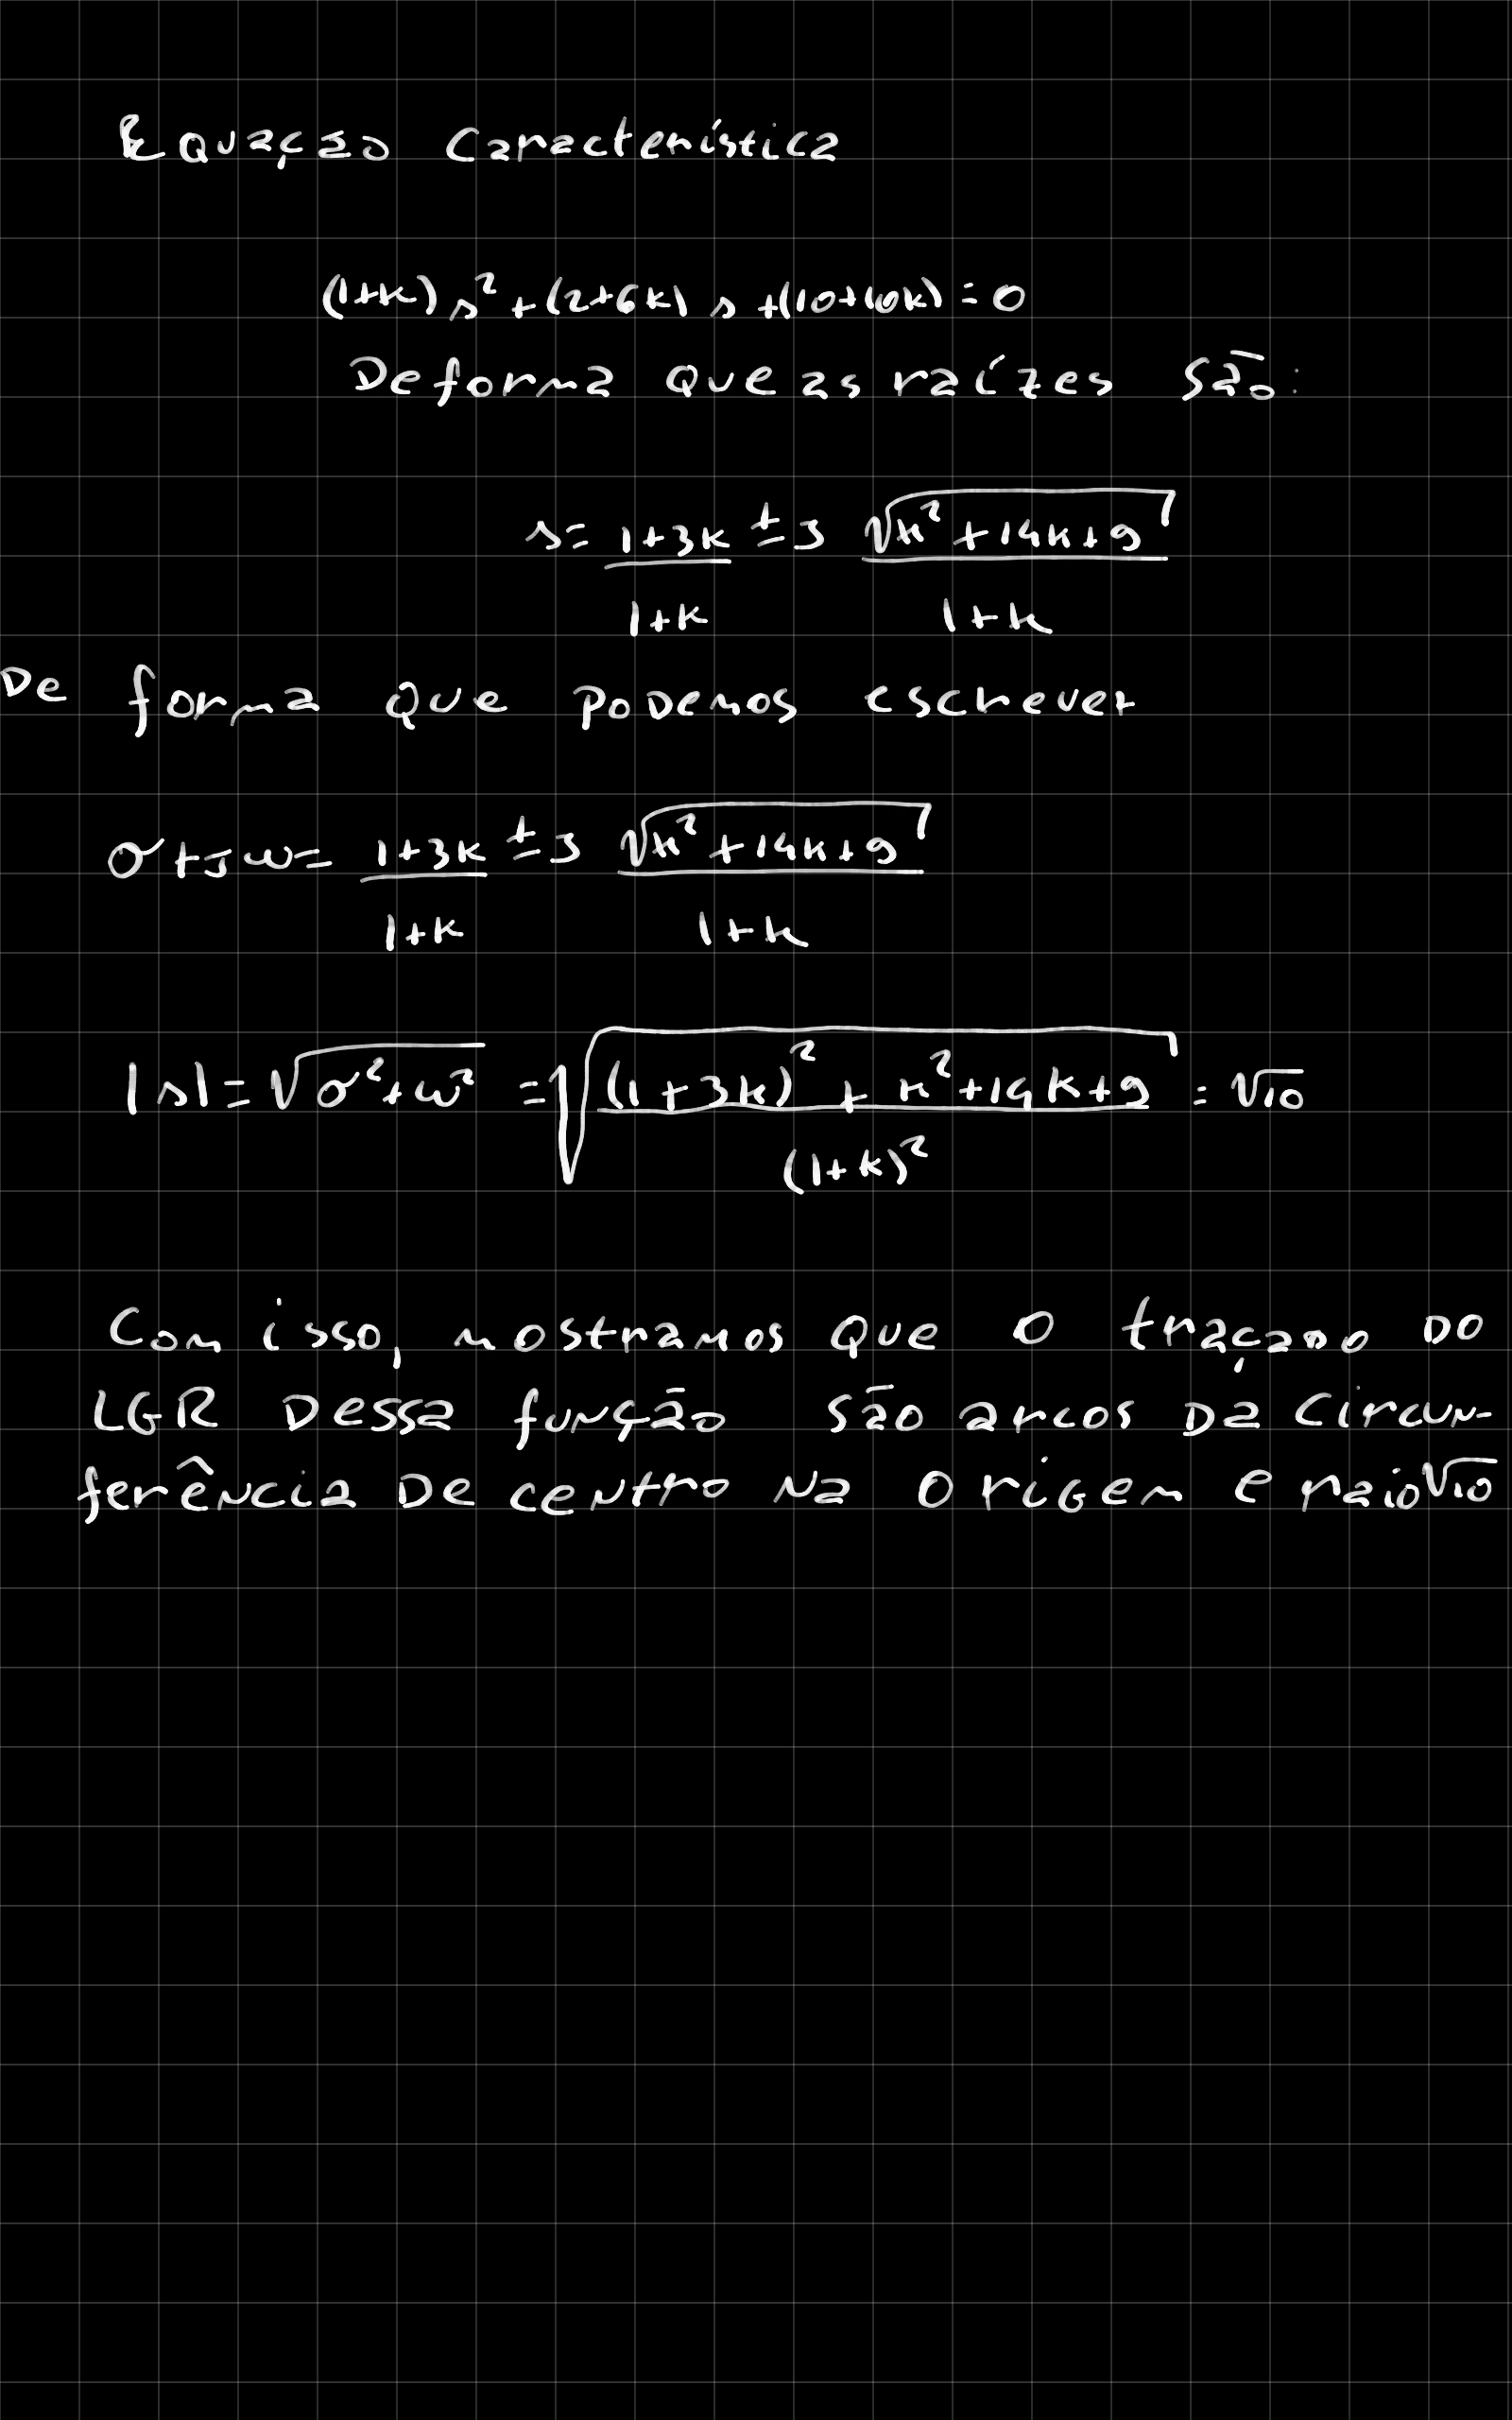 Equação Característica
(1+K) s² + (2+6K) s + (10+10K) = 0
De forma que as raízes são:
s = (1+3K)/(1+K) ± j √(K²+14K+9)/(1+K)
De forma que podemos escrever
σ + jω = (1+3K)/(1+K) ± j √(K²+14K+9)/(1+K)
|s| = √(σ²+ω²) = √(((1+3K)² + K²+14K+9)/(1+K)²) = √10
Com isso, mostramos que o traçado do
LGR dessa função são arcos da circun-
ferência de centro na origem e raio √10